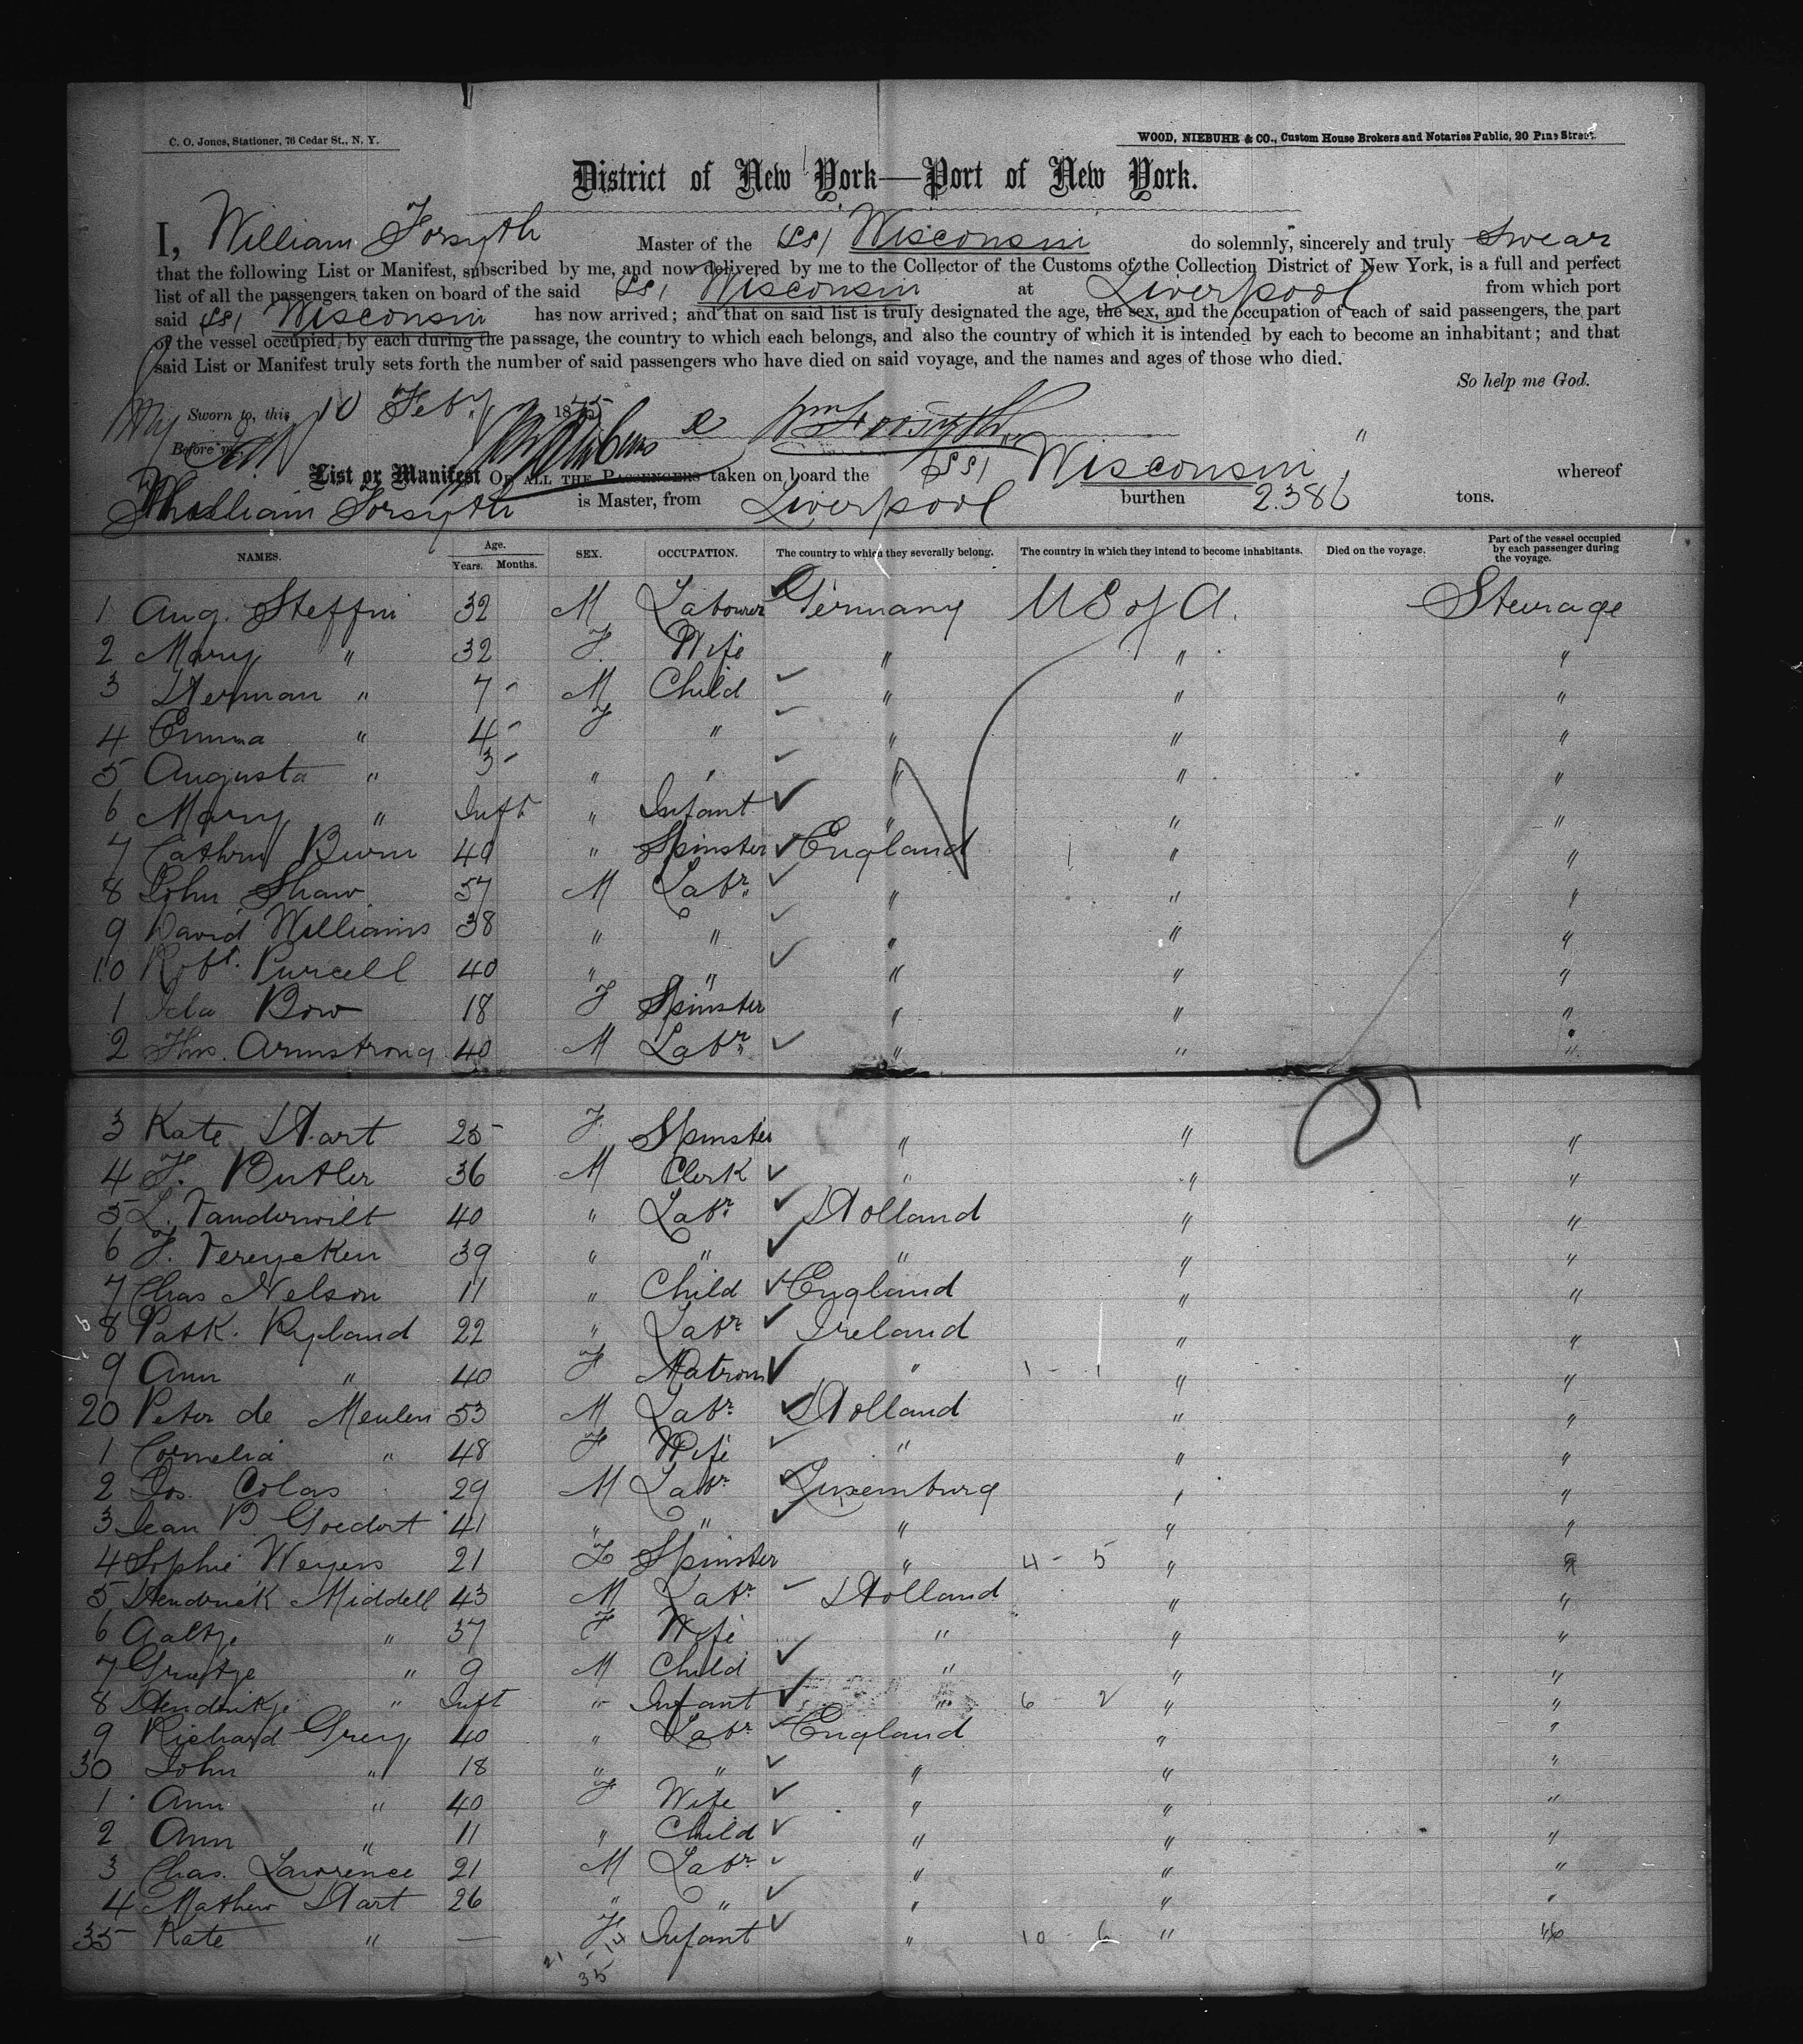 C. O. Jones, Stationer, 76 Cedar St., N. Y.
WOOD, NIEBUHR & CO., Custom House Brokers and Notaries Public, 20 Pine Street.
District of New York—Port of New York.
I, William Forsyth Master of the SS/ Wisconsin do solemnly, sincerely and truly Swear
that the following List or Manifest, subscribed by me, and now delivered by me to the Collector of the Customs of the Collection District of New York, is a full and perfect
list of all the passengers taken on board of the said SS/ Wisconsin at Liverpool from which port
said SS/ Wisconsin has now arrived; and that on said list is truly designated the age, the sex, and the occupation of each of said passengers, the part
of the vessel occupied by each during the passage, the country to which each belongs, and also the country of which it is intended by each to become an inhabitant; and that
said List or Manifest truly sets forth the number of said passengers who have died on said voyage, and the names and ages of those who died.
So help me God.
Sworn to, this 10 Feby 1875
Wm Forsyth
Before me,
List or Manifest OF ALL THE PASSENGERS taken on board the SS/ Wisconsin whereof
William Forsyth is Master, from Liverpool burthen 2.386 tons.
NAMES. Age. Years. Months. SEX. OCCUPATION. The country to which they severally belong. The country in which they intend to become inhabitants. Died on the voyage. Part of the vessel occupied by each passenger during the voyage.
1 Aug. Steffin 32 M Labourer Germany US of A. Steurage
2 Mary " 32 F Wife " " "
3 Herman " 7 M Child " " "
4 Emma " 4 F " " " "
5 Augusta " 3 " " " " "
6 Mary " Inft " Infant " " "
7 Cathrn 40 " Spinster England " "
8 John Shaw 57 M Labr. " " "
9 David Williams 38 " " " " "
10 Robt. Purcell 40 " " " " "
1 Ida Bow 18 F Spinster " " "
2 Thos. Armstrong 40 M Labr. " " "
3 Kate Hart 25 F Spinster " " "
4 F. Butler 36 M Clerk " " "
5 L. Vanderwilt 40 " Labr Holland " "
6 F. Vereycken 39 " " " " "
7 Chas Nelson 11 " Child England " "
8 Patk. Ryland 22 " Labr Ireland " "
9 Ann " 40 F Matron " 1 - 1 " "
20 Peter de Meulen 53 M Labr Holland " "
1 Cornelia " 48 F Wife " " "
2 Jos. Colas 29 M Labr Luxemburg " "
3 Jean B. Goedert 41 " " " " "
4 Sophie Weyers 21 F Spinster " 4 - 5 " "
5 Hendrick Middell 43 M Labr Holland " "
6 Aaltje " 37 F Wife " " "
7 Grietje " 9 M Child " " "
8 Hendrikje " Inft " Infant " 6 - 2 " "
9 Richard Grey 40 " Labr England " "
30 John " 18 " " " " "
1 Ann " 40 F Wife " " "
2 Ann " 11 " Child " " "
3 Chas. Lawrence 21 M Labr " " "
4 Mathew Hart 26 " " " " "
35 Kate " — F Infant " 10 - 6 " "
21 - 14
35